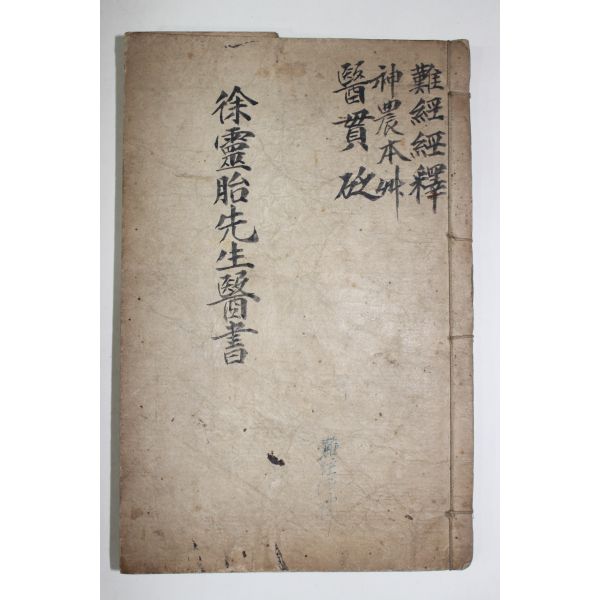 難經經釋
神農本艸
醫貫砭
徐靈胎先生醫書
難經